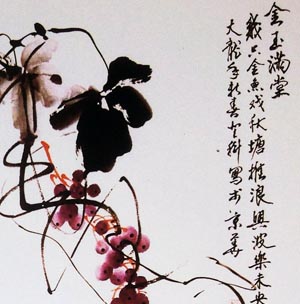 金玉满堂
裁只金鱼戏秋塘推浪兴波乐未央
大龙年新春文科写于京华